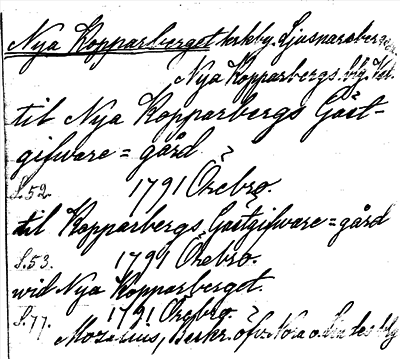 Nya Kopparberget krkby. Ljusnarsbergs
Nya Kopparbergs blg. Vst.
til Nya Kopparbergs Gäst-
gifware = gård
S. 52. 1791 Örebro.
til Kopparbergs Gästgifware = gård
S. 53. 1791 Örebro.
wid Nya Kopparberget.
S. 77. 1791 Örebro.
Mozelius, Beskr. öfv. Nora o. Lindes blg